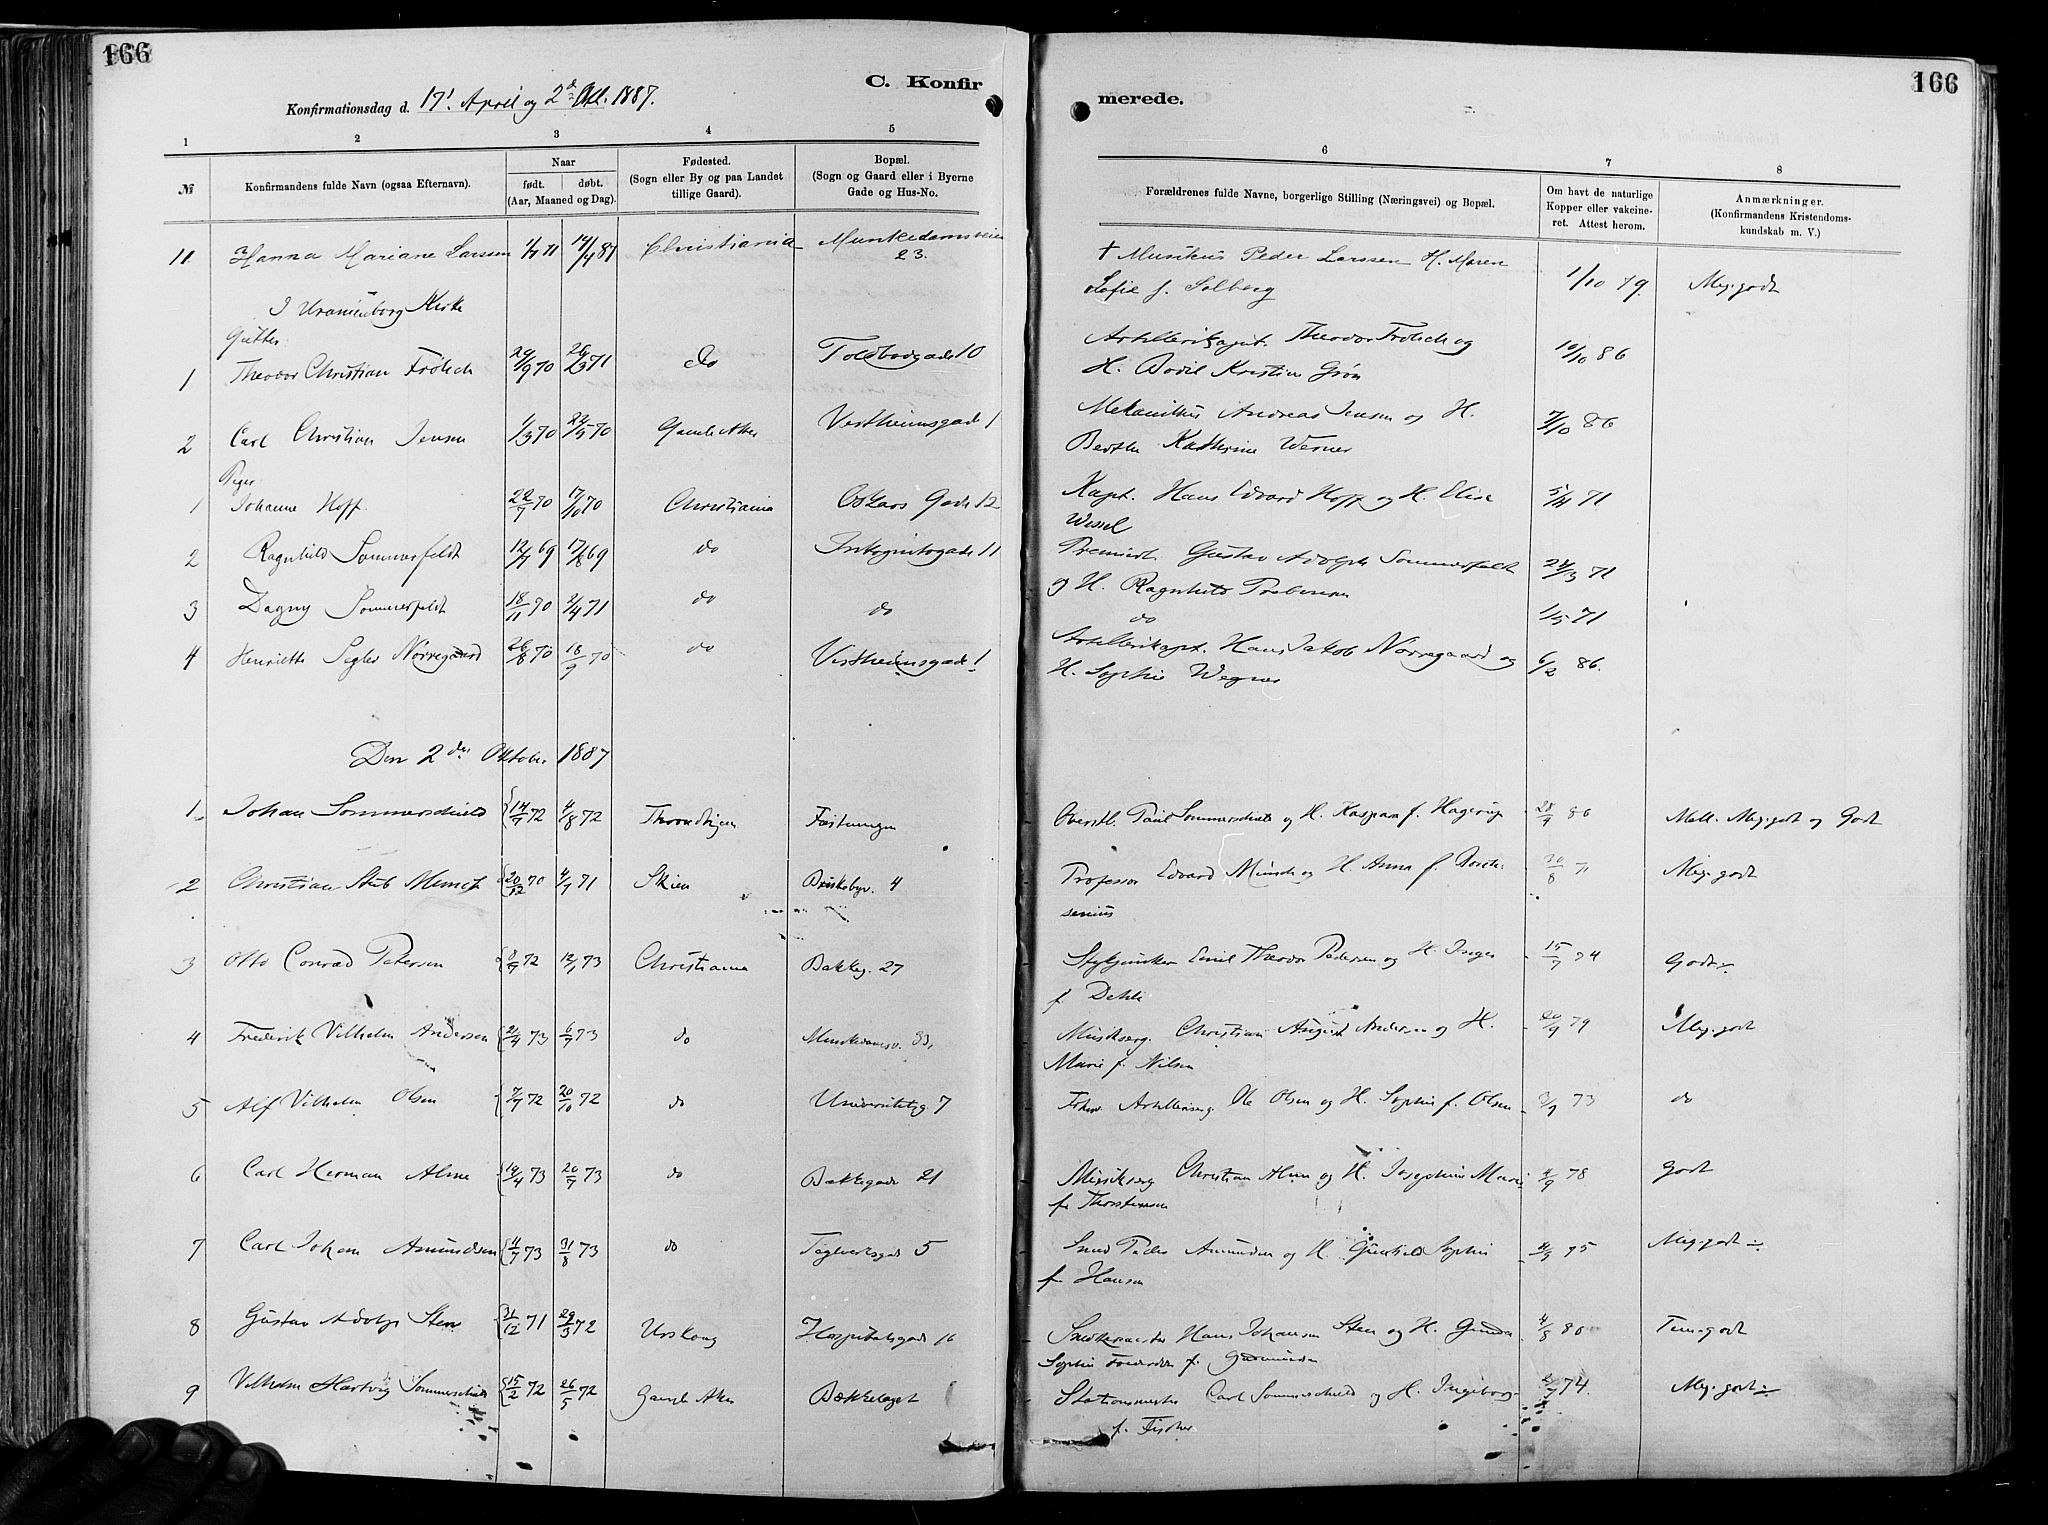 166
C. Konfir
Konfirmationsdag d. 17' April og 2d Okt. 1887.
1 2 3 4 5
№ Konfirmandens fulde Navn (ogsaa Efternavn). Naar født. døbt. (Aar, Maaned og Dag). Fødested. (Sogn eller By og paa Landet tillige Gaard). Bopæl. (Sogn og Gaard eller i Byerne Gade og Hus-No.
11 Hanna Mariane Larssen 1/7 71 14/4 87 Christiania Munkedamsveien 23.
I Uranienborg Kirke
Gutter
1 Theodor Christian Frölich 29/9 70 26/3 71 do Toldbodgade 10
2 Carl Christian Jensen 1/3 70 22/5 70 Gamle Aker Vestheimsgade 1
Piger
1 Johanne Hoff 22/7 70 17/10 70 Christiania Oskars Gade 12
2 Ragnhild Sommerfeldt 12/7 69 17/8 69 do Inkognitogade 11
3 Dagny Sommerfeldt 18/11 70 2/4 71 do do
4 Henriette Segler Nörregaard 26/8 70 18/9 70 do Vestheimsgade 1
Den 2den Oktober 1887
1. Johan Sommerschield 14/7 72 4/8 72 Throndhjem Fæstningen
2 Christian Stub Munch 20/12 70 4/7 71 Skien Briskebyv. 4
3 Otto Conrad Petersen 8/9 72 12/1 73 Christiania Bakkeg. 27
4 Frederik Vilhelm Andersen 2/4 73 6/7 73 do Munkedamsv. 33,
5 Alf Vilhelm Olsen 7/7 72 20/10 72 do Universitetsg 7
6 Carl Herman Alme 14/4 73 20/7 73 do Bakkegade 21
7 Carl Johan Amundsen 4/7 73 31/8 73 do Teglverksgade 5
8 Gustav Adolf Sten 31/12 71 29/3 72 Urskoug Hospitalsgade 16
9 Vilhelm Hartvig Sommerschield 15/2 72 26/5 72 Gamle Aker Bækkelaget
166
merede.
6 7 8
Forældrenes fulde Navne, borgerlige Stilling (Næringsvei) og Bopæl. Om havt de naturlige Kopper eller vakcineret. Attest herom. Anmærkninger. (Konfirmandens Kristendomskundskab m. V.)
† Musikus Peder Larssen H. Maren 1/10 79. Meg. godt
Sofie f. Solberg
Artillerikapt. Theodor Frölich og 10/10 86
H. Bodil Kristine Grön
Mekanikus Andreas Jensen og H. 7/10 86
Berthe Kathrine Werner
Kapt. Hans Edvard Hoff og H. Elise 71
Wessel
Premierl. Gustav Adolph Sommerfeldt 24/3 71
og H. Ragnhild
do 1/5 71
Artillerikapt. Hans Jakob Nörregaard og 6/2 86.
H. Sophie Wegner
Oberstl. Paul Sommerschield og H. Kaspara f. Hagerup 28/9 86 Mell. Meg. godt og Godt
Professor Edvard Munch og H. Anna f. Borch- 30/8 71 Meg. godt
senius
Stykjunker Emil Theodor Pedersen og H. Inger 15/7 74 Godt
f. Dehli
Musikserg. Christian August Andersen og H. 20/9 79 Meg. godt
Marie f. Nilsen
Artillerisserg. Ole Olsen og H. Sophie f. Olsen 3/9 73 do
Musikserg Christian Alme og H. Josephine Marie 4/9 78 Godt
f. Thorstensen
Smed Peder Amundsen og H. Gunhild Sophie Meg. godt
f. Hansen
Snekkermester Hans Johansen Sten og H. Gunda 4/8 80 Tem. godt
Sophie f. Gudmundsen
Stationsmester Carl Sommerschield og H. Ingeborg 74. Meg. godt
f. Fischer